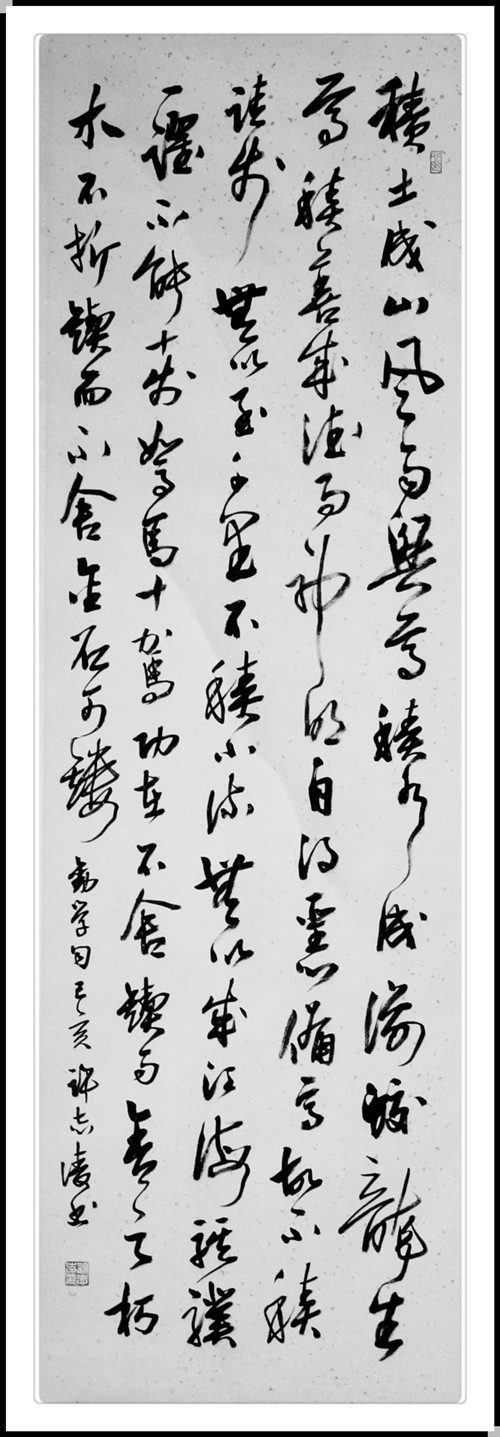 積土成山風雨興焉積水成淵蛟龍生
焉積善成德而神明自得聖心備焉故不積
跬步無以至千里不積小流無以成江海騏驥
一躍不能十步駑馬十駕功在不舍鍥而舍之朽
木不折鍥而不舍金石可鏤 勸学句己亥許志凌书